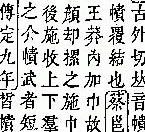 古外切𠀤音幘
幘覆結也蔡邕
王莽内加巾故
顔却摞之施巾
後施收上下羣
之介幘武者短
傳定九年晳幘